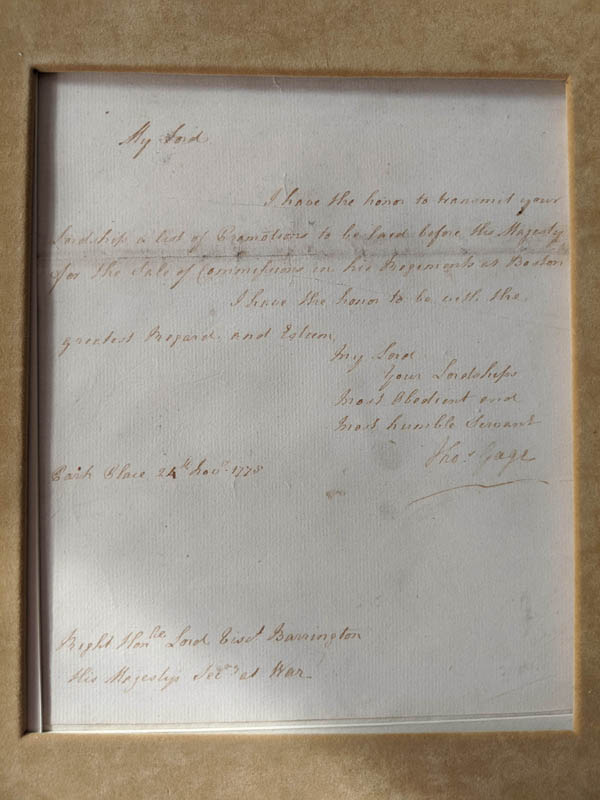 My Lord
I have the honor to transmit your
Lordship a list of Promotions to be laid before His Majesty
for the Sale of Commissions in his Regements at Boston
I have the honor to be with the
greatest Regard and Esteem,
My Lord
Your Lordships
Most Obedient and
Most humble Servant
Thos Gage
Park Place 24th Novr 1775
Right Honble Lord Visct Barrington
His Majestys Secry at War